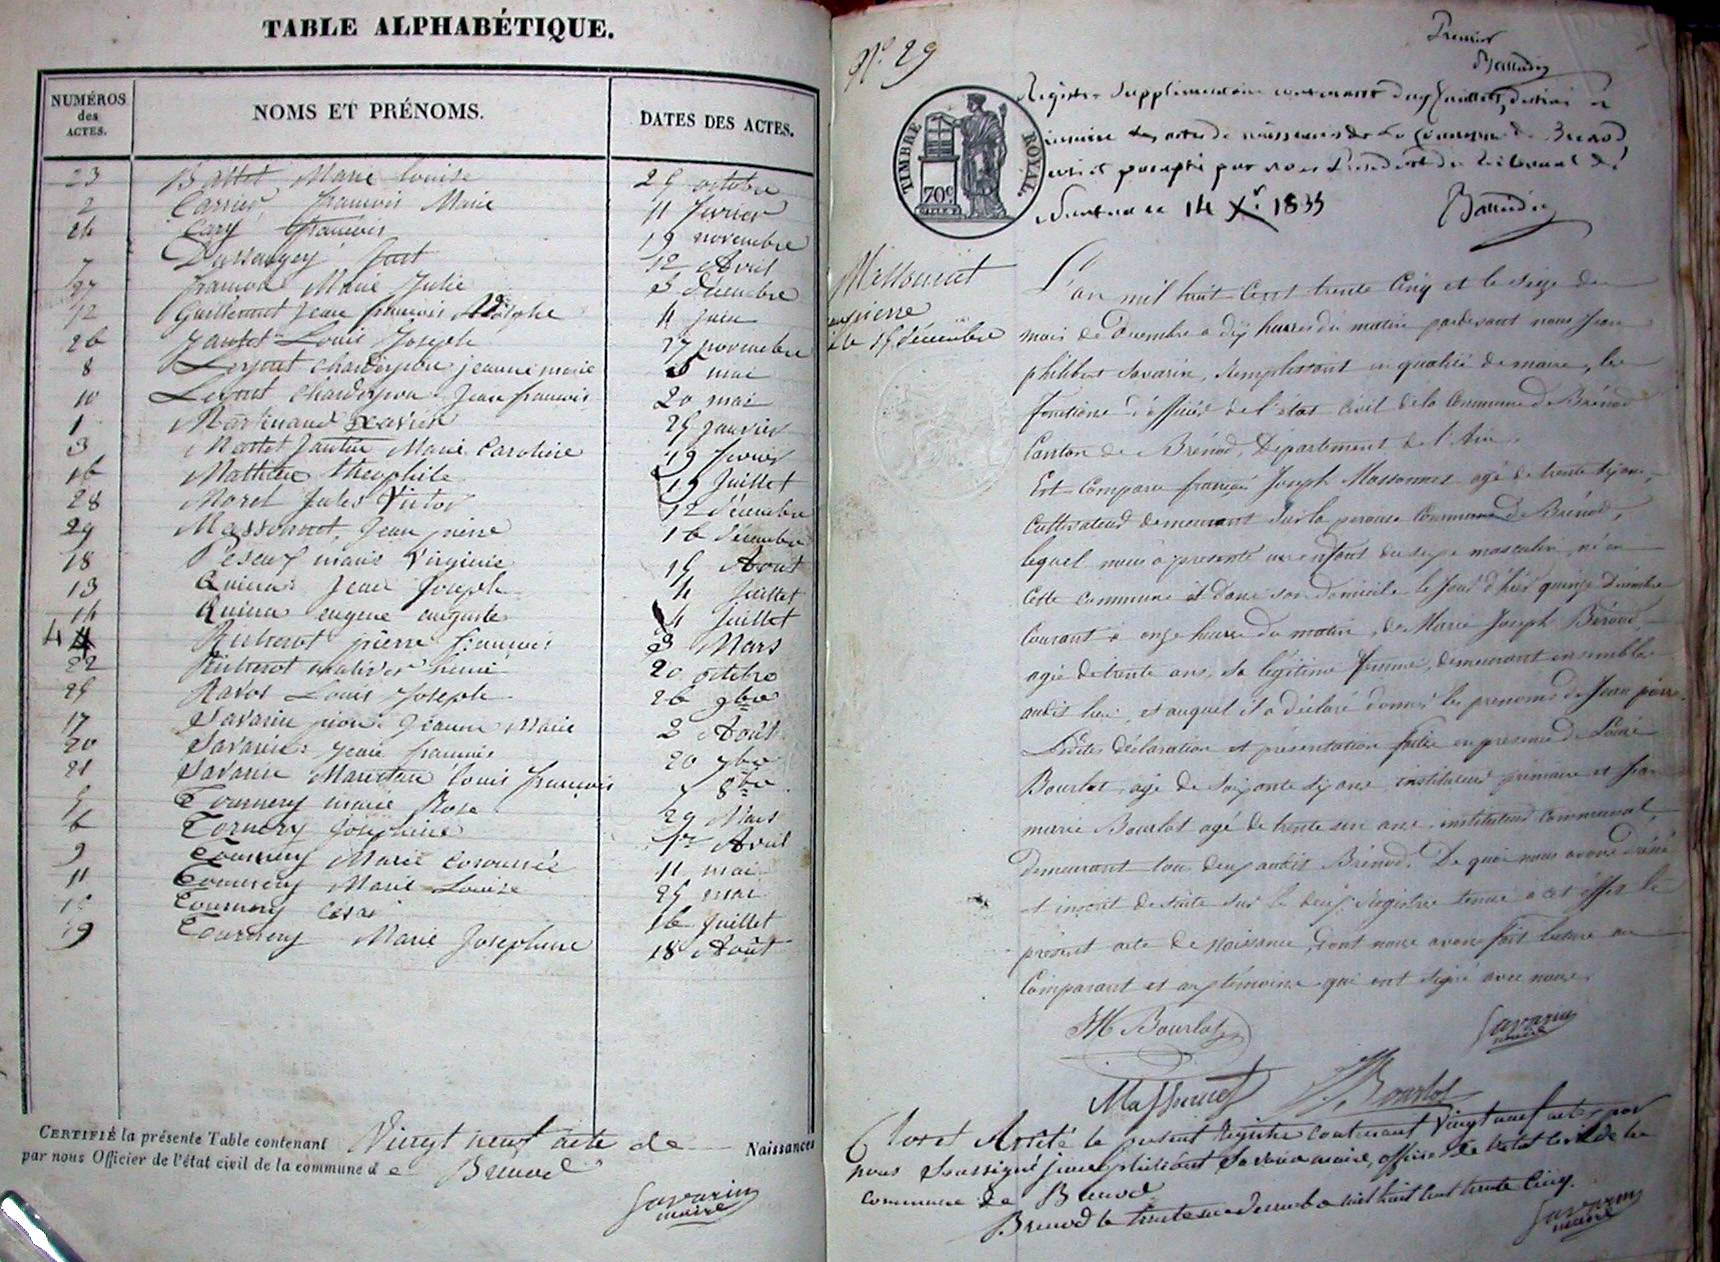 TABLE ALPHABÉTIQUE.
NUMÉROS des ACTES.
NOMS ET PRÉNOMS.
DATES DES ACTES.
23 Ballet Marie Louise 25 octobre
2 Carrier françois Marie 11 fevrier
24 Cary françois 19 novembre
7 Just 12 Avril
27 françois Marie Julie 3 décembre
12 Guillermet Jean françois 4 juin
26 Jantet Louis Joseph 27 novembre
8 chardeyron jeanne marie 5 mai
10 chardeyron Jean françois 20 mai
1 Martinand Xavier 25 janvier
3 Martel Jantin Marie Caroline 19 fevrier
16 Mathieu théophile 19 Juillet
28 Morel Jules Victor 12 décembre
29 Massonnet, Jean pierre 16 décembre
18 marie Virginie 15 Aout
13 Jean Joseph 4 Juillet
14 eugene auguste 4 Juillet
4 pierre françois 3 Mars
22 20 octobre
25 Ravot Louis Joseph 26 9bre
17 Savarin jeanne Marie 2 Août
20 Savarin jean françois 20 7bre
21 Savarin Louis françois 7 8bre
5 Tournery marie Rose 29 Mars
6 Tournery Josephine 1er Avril
9 Tournery Marie 11 mai
11 Tournery Marie Louise 25 mai
15 Tournery César 16 Juillet
19 Tournery Marie Josephine 18 Août
CERTIFIÉ la présente Table contenant Vingt neuf acte de Naissances
par nous Officier de l'état civil de la commune d e Brenod
Savarin
maire
No. 29
Premier
TIMBRE ROYAL.
70c
Registre Supplémentaire contenant deux feuillets, destiné à
inscrire les actes de naissances de la Commune de Brenod,
paraphé par nous Président du tribunal de
Nantua ce 14 Xr. 1835
Massonnet
Jean pierre
né le 15 décembre
L'an mil huit Cent trente Cinq et le Seize du
mois de Décembre a dix heures du matin pardevant nous Jean
philibert Savarin, remplissant en qualité de maire, les
fonctions d'officier de l'état civil de la Commune de Brénod
Canton de Brénod, Département de l'Ain.
Est Comparu françois Joseph Massonnet agé de trente six ans,
Cultivateur demeurant Sur la perouse Commune de Brénod,
lequel nous a presenté un enfant du sexe masculin, né en
Cette commune et dans son domicile le Jour d'hier quinze Décembre
Courant à onze heures du matin, de Marie Joseph Béroud
agée de trente ans, sa légitime femme, demeurant ensemble
audit lieu, et auquel il a déclaré donner les prenoms de Jean pierre.
Lesdites déclaration et présentation faites en presence de Louis
Bourlot, agé de Soixante six ans, instituteur primaire et Jean
marie Bourlot agé de trente un ans, instituteur communal,
Demeurant tous deux audit Brénod. De quoi nous avons dréssé
et inscrit de suite sur les deux régistres tenus à cet effet le
présent acte de Naissance, dont nous avons fait lecture au
Comparant et aux témoins qui ont signé avec nous.
JM Bourlot
Savarin
maire
Massonnet
L. Bourlot
Clos et Arrêté le présent registre contenant Vingt neuf actes par
nous Soussigné jean philibert Savarin maire, officier de l'état Civil de la
commune de Brenod
Brenod le trente un décembre mil huit cent trente Cinq.
Savarin
maire